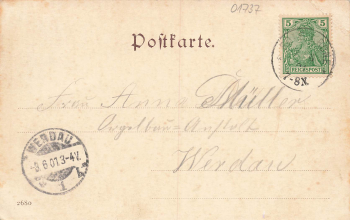 01737
Postkarte.
5 5
REICHSPOST
7-8N.
Frau Anna Müller
Orgelbau=Anstalt
Werdau
WERDAU
-9.6.01.3-4V.
1
2680